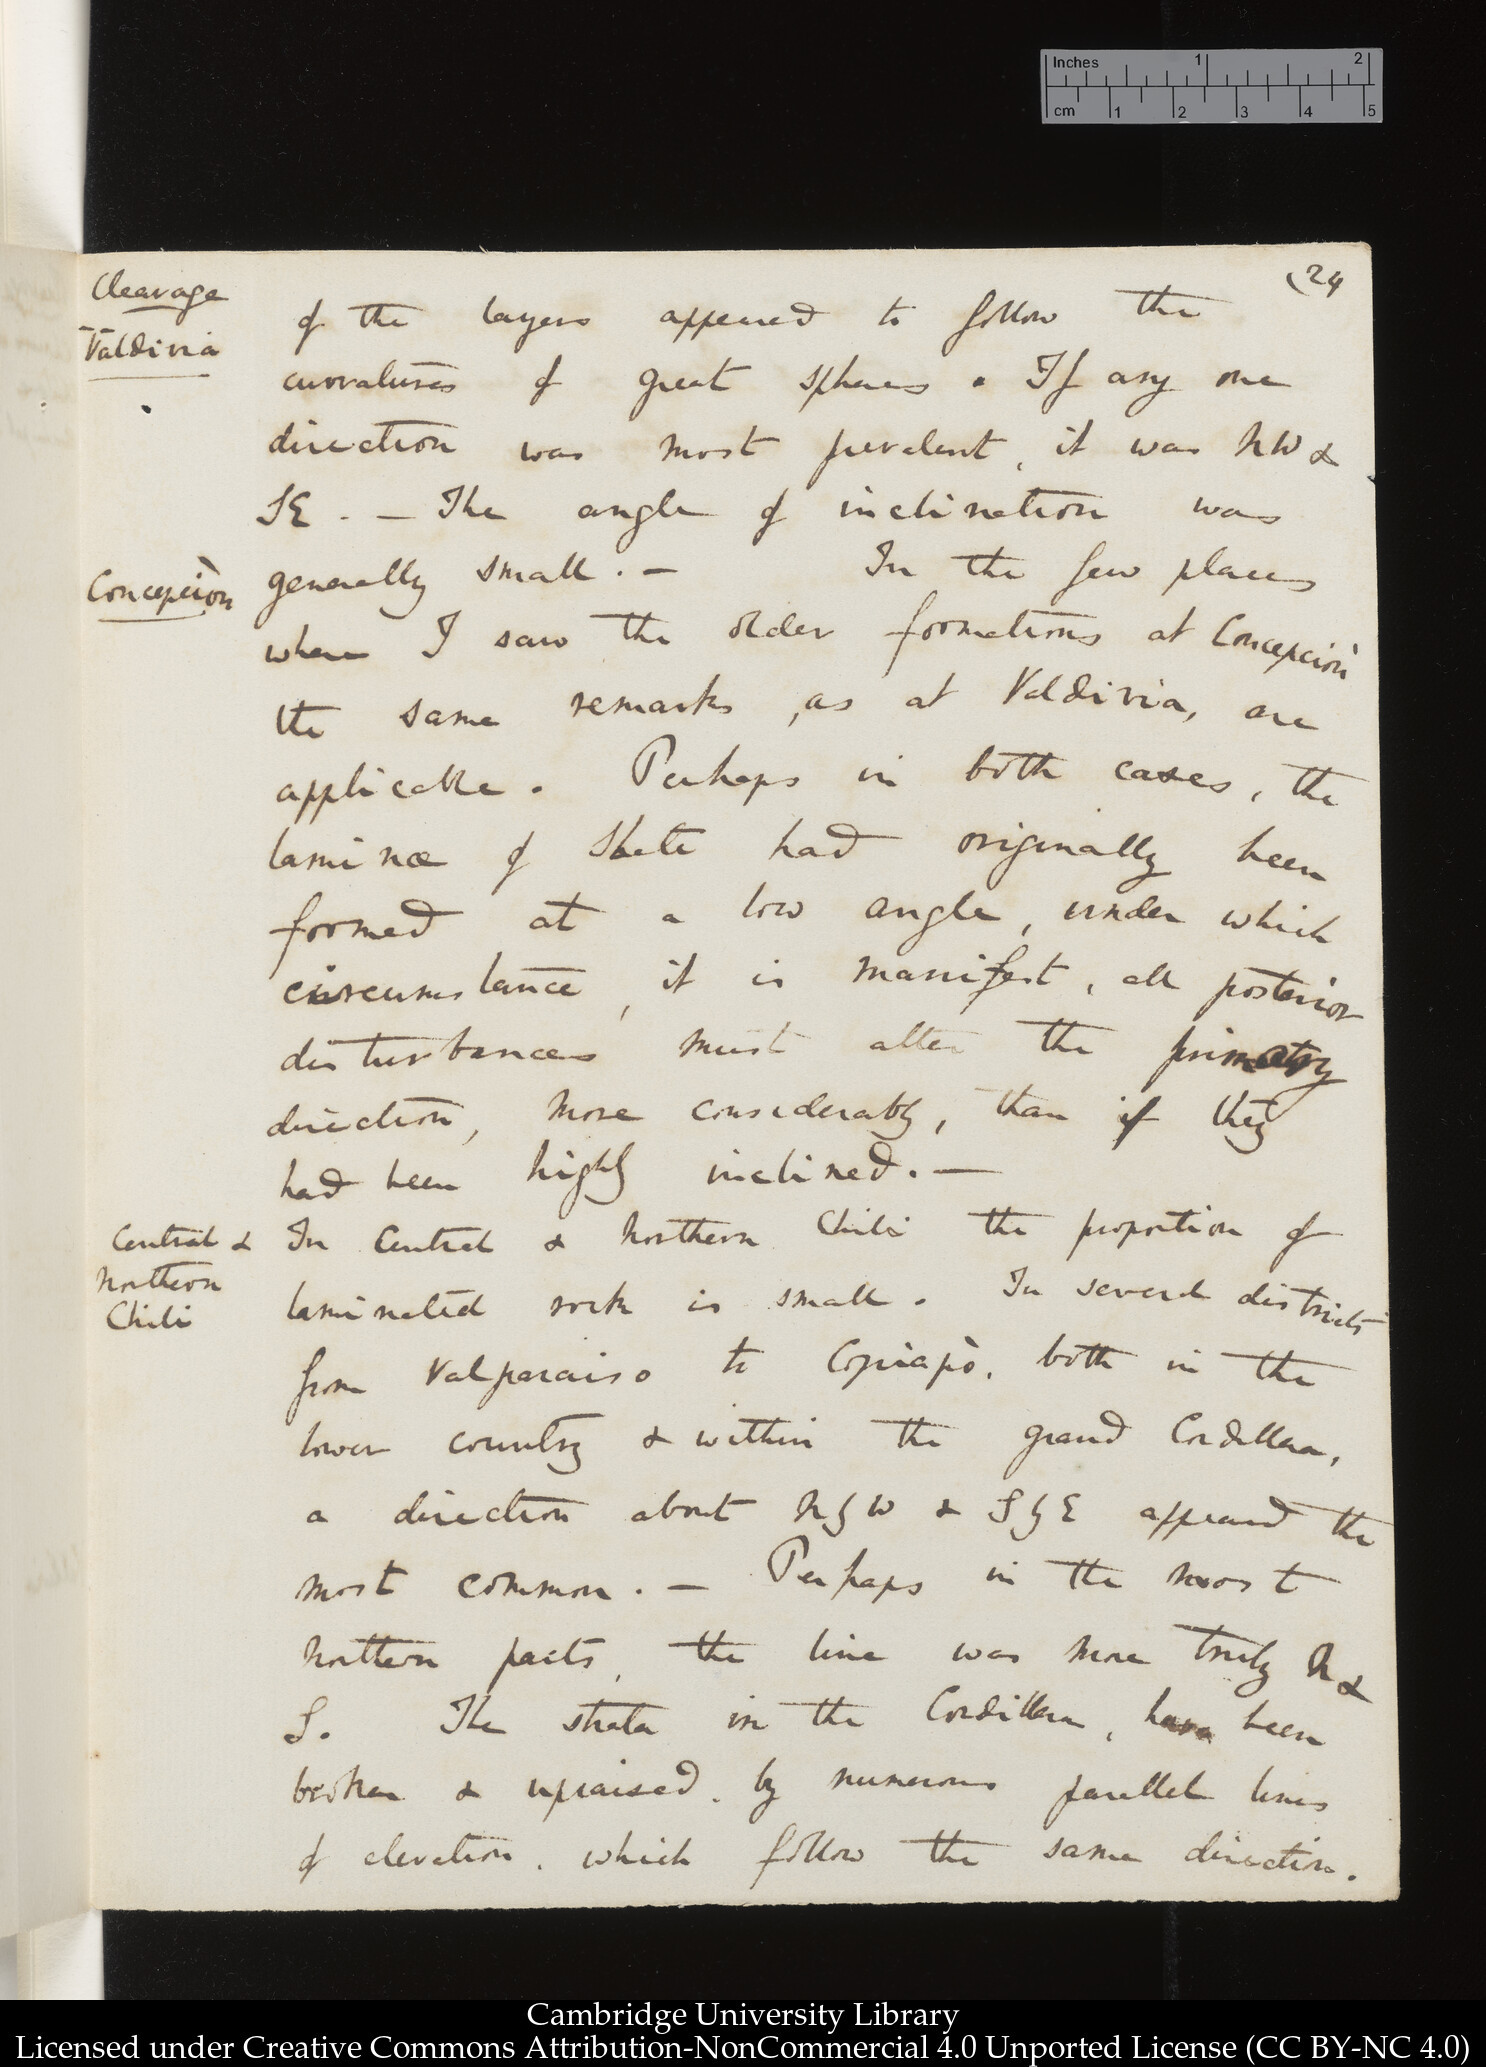 Inches 1 2
cm 1 2 3 4 5
(24
Cleavage
Valdivia
of the layers appeared to follow the
curvatures of great spheres. If any one
direction was most prevalent, it was NW &
SE. — The angle of inclination was
Concepciòn
generally small. — In the few places
where I saw the older formations at Concepciòn
the same remarks, as at Valdivia, are
applicable. Perhaps in both cases, the
laminæ of Slate had originally been
formed at a low angle, under which
circumstance, it is manifest, all posterior
disturbances must alter the primary
direction, more considerably, than if they
had been highly inclined. —
Central &
Northern
Chili
In Central & Northern Chili the proportion of
laminated rock is small. In several districts
from Valparaiso to Copiapò, both in the
lower country & within the grand Cordillera,
a direction about N b W & S b E appeared the
most common. — Perhaps in the most
Northern parts, the line was more truly N &
S. The strata in the Cordillera, have been
broken & upraised, by numerous parallel lines
of elevation, which follow the same direction.
Cambridge University Library
Licensed under Creative Commons Attribution-NonCommercial 4.0 Unported License (CC BY-NC 4.0)